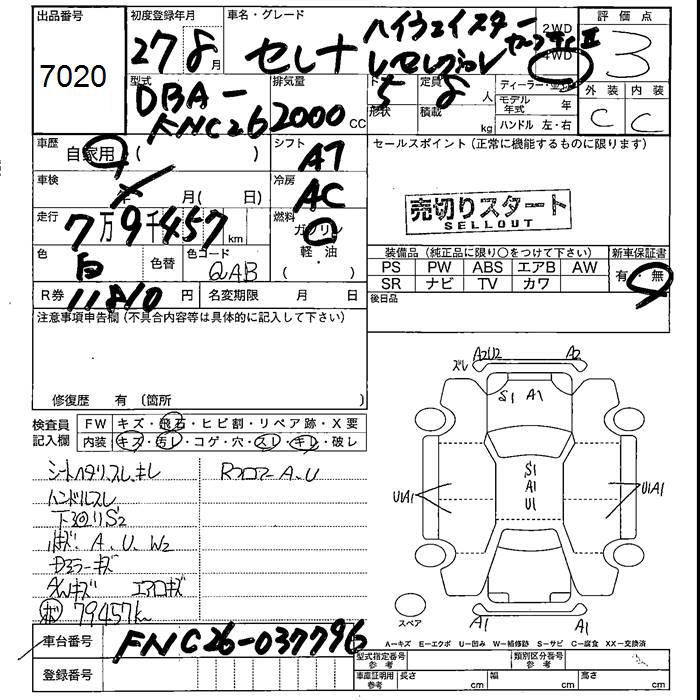 出品番号 初度登録年月 車名・グレード 評価点
7020 27 8月 セレナ ハイウェイスター
2WD 4WD 3
型式 排気量 ドア 定員 ディーラー・並行 外装 内装
DBA-FNC26 2000 CC 5 8 人 モデル年式 年 C C
形状 積載 kg ハンドル 左・右
車歴 自家用 ( ) シフト AT セールスポイント (正常に機能するものに限ります)
車検 年 月( 日) 冷房 AC
売切りスタート
SELLOUT
走行 7万9千457 km 燃料 ガソリン 軽・油
色 白 色替 色コード QAB
装備品 (純正品に限り○をつけて下さい) 新車保証書
PS PW ABS エアB AW 有・無
SR ナビ TV カワ
R券 11810 円 名変期限 月 日 後日品
注意事項申告欄 (不具合内容等は具体的に記入して下さい)
修復歴 有 (箇所 )
検査員記入欄 FW キズ・飛石・ヒビ割・リペア跡・X要
内装 キズ・汚レ・コゲ・穴・スレ・キレ・破レ
シートヘタリ、スレ、キレ Rフロアー A、U
ハンドルスレ
下廻りS2
A、U、W2
ドアミラーキズ
A/Wキズ エアロキズ
79457k
ズレ A2U2 A2
S1 A1
S1
A1
U1
U1A1 U1A1
スペア A1 A1
A=キズ E=エクボ U=凹み W=補修跡 S=サビ C=腐食 XX=交換済
車台番号 FNC26-037796
型式指定番号 参考 類別区分番号 参考
登録番号
車庫証明用 参考 長さ cm 幅 cm 高さ cm